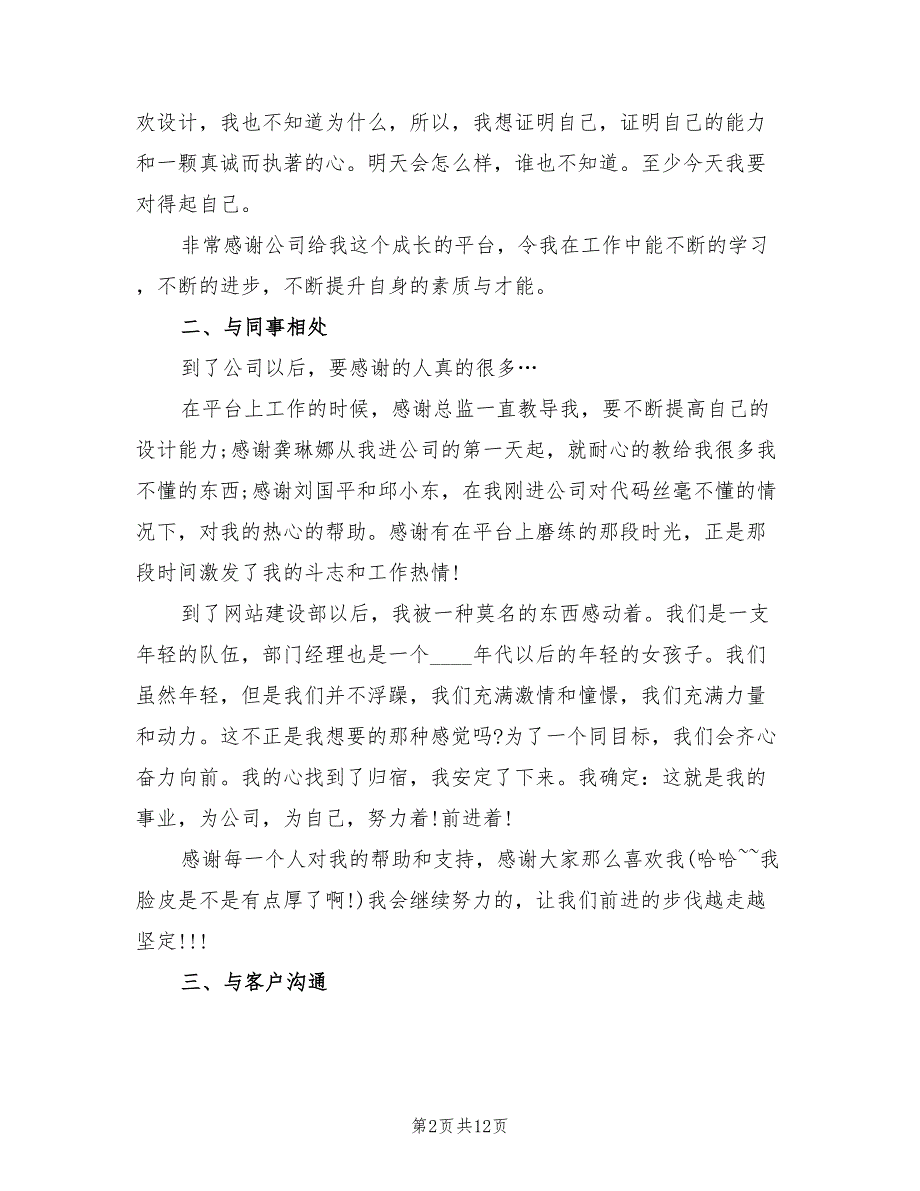 欢设计，我也不知道为什么，所以，我想证明自己，证明自己的能力
和一颗真诚而执著的心。明天会怎么样，谁也不知道。至少今天我要
对得起自己。
非常感谢公司给我这个成长的平台，令我在工作中能不断的学习
，不断的进步，不断提升自身的素质与才能。
二、与同事相处
到了公司以后，要感谢的人真的很多…
在平台上工作的时候，感谢总监一直教导我，要不断提高自己的
设计能力;感谢龚琳娜从我进公司的第一天起，就耐心的教给我很多我
不懂的东西;感谢刘国平和邱小东，在我刚进公司对代码丝毫不懂的情
况下，对我的热心的帮助。感谢有在平台上磨练的那段时光，正是那
段时间激发了我的斗志和工作热情!
到了网站建设部以后，我被一种莫名的东西感动着。我们是一支
年轻的队伍，部门经理也是一个____年代以后的年轻的女孩子。我们
虽然年轻，但是我们并不浮躁，我们充满激情和憧憬，我们充满力量
和动力。这不正是我想要的那种感觉吗?为了一个同目标，我们会齐心
奋力向前。我的心找到了归宿，我安定了下来。我确定：这就是我的
事业，为公司，为自己，努力着!前进着!
感谢每一个人对我的帮助和支持，感谢大家那么喜欢我(哈哈~~我
脸皮是不是有点厚了啊!)我会继续努力的，让我们前进的步伐越走越
坚定!!!
三、与客户沟通
第2页共12页